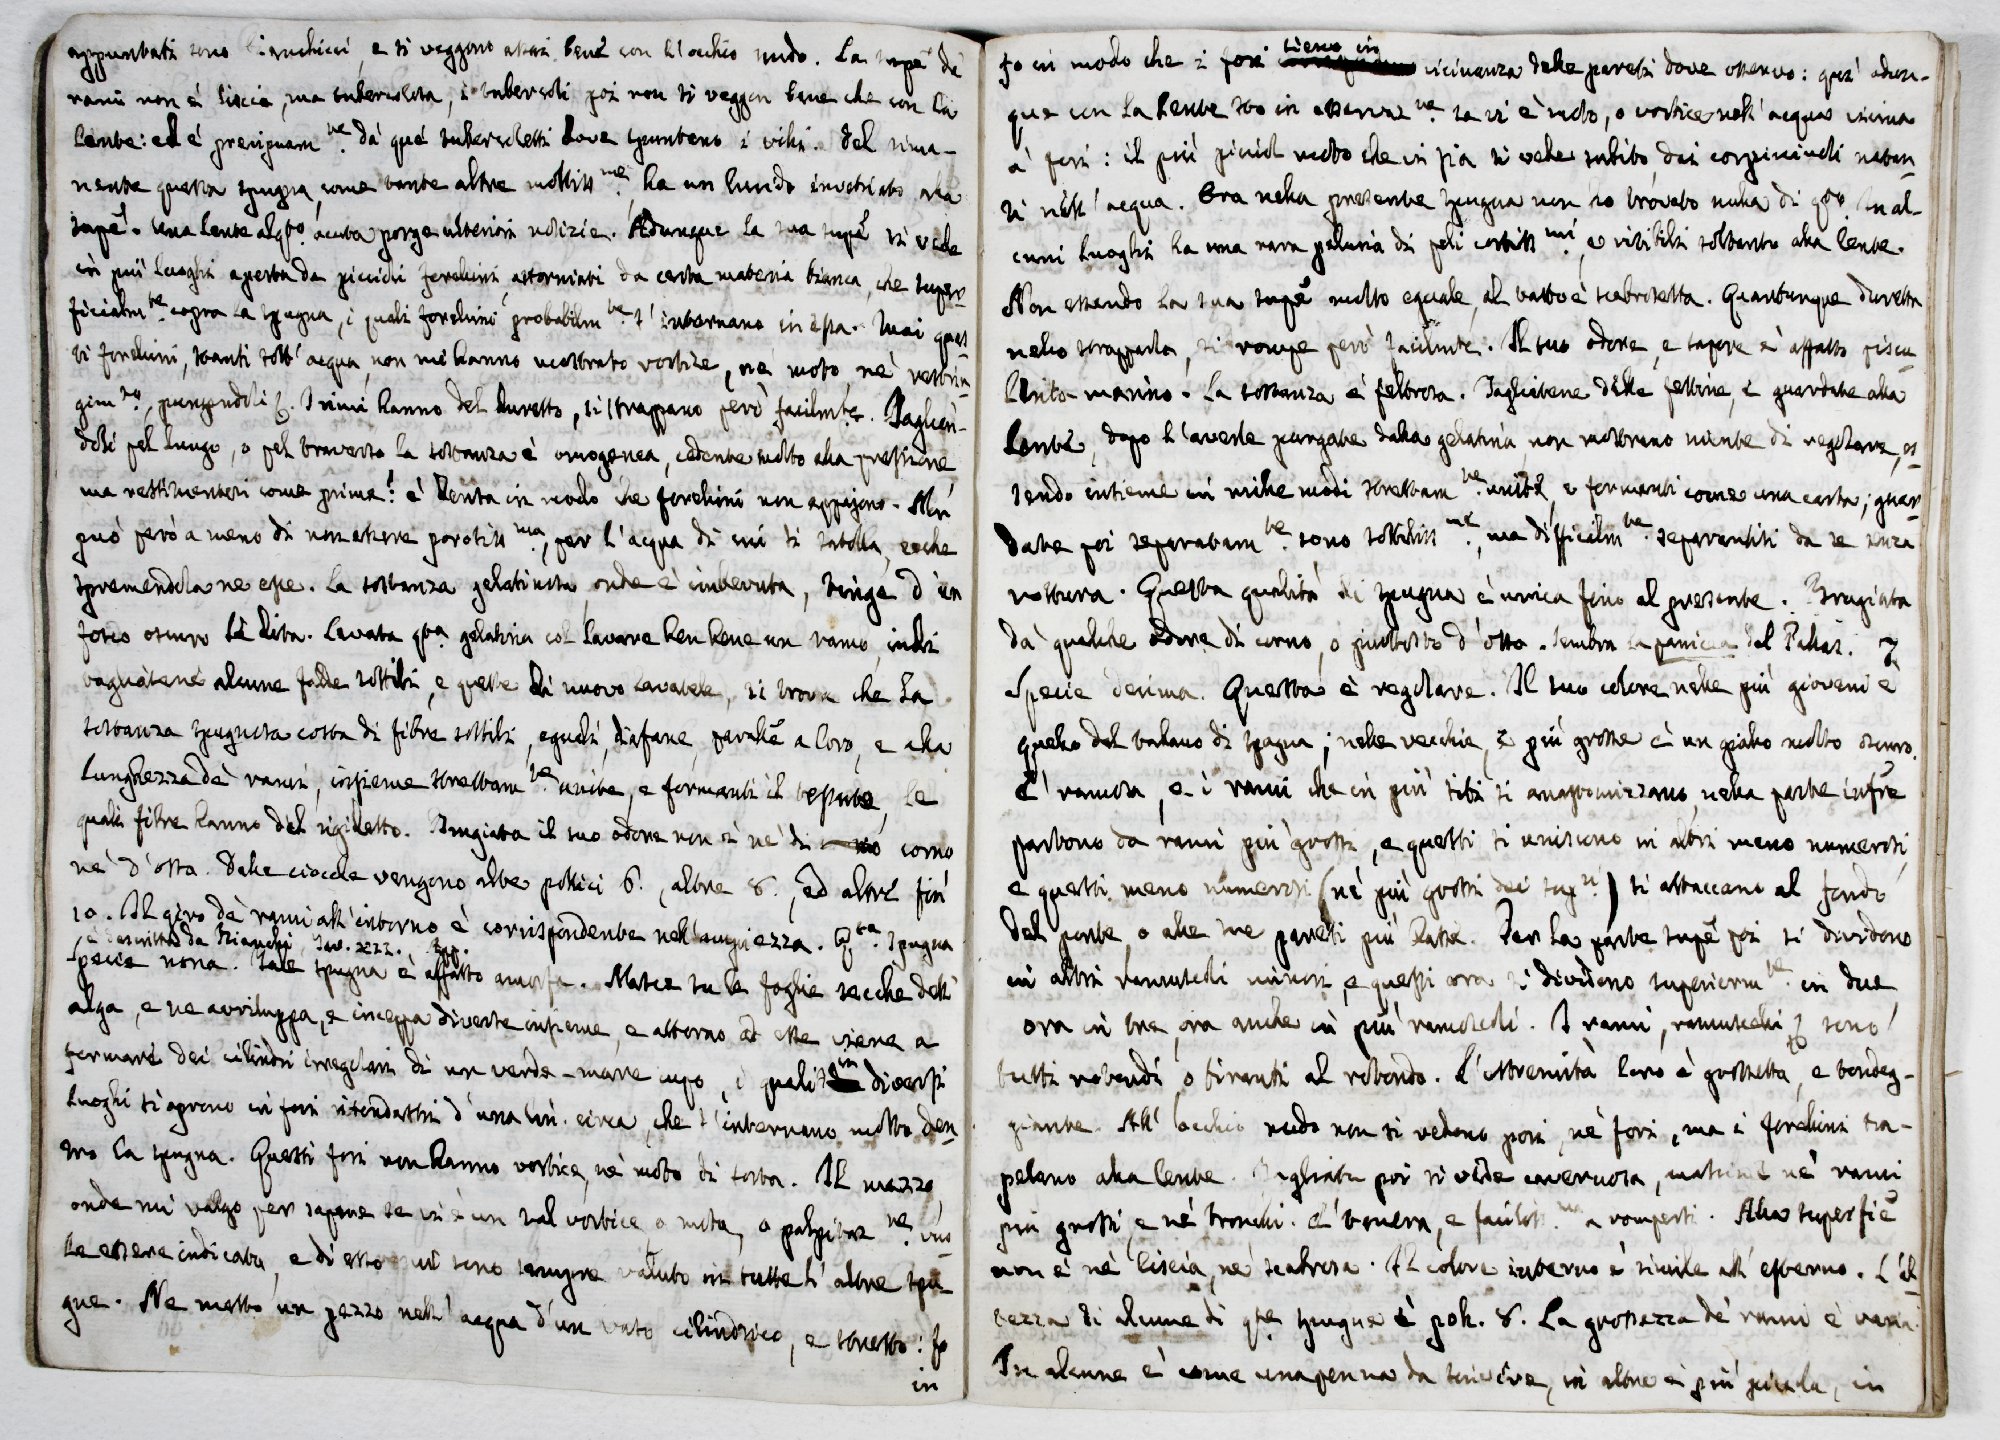 appuntati sono bianchicci, e si veggono assai bene con l'occhio nudo. La supe de'
rami non è liscia, ma tubercolosa, i tubercoli poi non si veggon bene che con la
lente: ed è precipuam.te da' que' tubercoletti dove spuntano i villi. Del rima-
nente questa spugna, come tante altre mollissme, ha un lucido invetriato alla
supe. Una lente alqto acuta porge ulteriori notizie. Adunque la sua supe si vede
in più luoghi aperta da piccioli forellini attorniati da certa materia bianca, che super-
ficialm.te copra la spugna, i quali forellini probabilm.te s'internano in essa. Mai ques-
ti forellini, stanti sott'acqua, non mi hanno mostrato vortice, nè moto, nè restrin-
gim.to, pungendoli &. I rami hanno del duretto, si strappano però facilmte. Taglian-
dosi pel lungo, o pel traverso la sostanza è omogenea, cedente molto alla pressione,
ma restituentesi come prima: è lenta in modo che forellini non appajono. Non
può però a meno di non essere porosissma, per l'acqua di cui si satolla, e che
spremendola ne esce. La sostanza gelatinosa onde è imbevuta, tinge d'un
fosco oscuro le dita. Lavata qta gelatina col lavare ben bene un ramo, indi
tagliatene alcune fette sottili, e queste di nuovo lavatele, si trova che la
sostanza spugnosa costa di fibre sottili, eguali, diafane, paralle a loro, e alla
lunghezza de' rami, insieme strettam.te unite, e formanti il tessuto, le
quali fibre hanno del rigidetto. Brugiata il suo odore non è nè di corno
nè d'ossa. Delle ciocche vengono alte pollici 6., altre 8., ed altre fin
10. Il giro de' rami all'intorno è corrispondente nell'ampiezza. Qta spugna
è descritta da Bianchi, Tav. XXII.
Specie nona. Tale spugna è affatto amorfa. Nasce su le foglie secche dell'
alga, e ne avviluppa, e inceppa diverse insieme, e attorno ad esse viene a
formare dei cilindri irregolari di un verde-mare cupo, i quali in diversi
luoghi si aprono in fori ritondastri d'una lin. circa, che s'internano molto den-
tro la spugna. Questi fori non hanno vortice, nè moto di sorta. Il mezzo,
onde mi valgo per sapere se vi è un tal vortice o moto, o palpitaz.ne, vuo-
le essere indicato, e di esso mi sono sempre valuto in tutte l'altre spu-
gne. Ne metto un pezzo nell'acqua d'un vaso cilindrico, e stretto: fo
in
fo in modo che i fori sieno in vicinanza delle pareti dove osservo: quì adun-
que con la lente sto in osservaz.ne se vi è moto, o vortice nell'acqua vicina
a' fori: il più picciol moto che vi sia si vede subito, dai corpiccivoli natan-
ti nell'acqua. Ora nella presente spugna non ho trovato nulla di qto. In al-
cuni luoghi ha una rara peluria di peli cortissmi, e visibili soltanto alla lente.
Non essendo la sua supe molto eguale, al tatto è scabrosetta. Quantunque duretta
nello strapparla, si rompe però facilmte. Il suo odore, e sapore è affatto piscu-
lento-marino. La sostanza è feltrosa. Tagliatene delle fettine, e guardate alla
lente, dopo l'averle purgate dalla gelatina, non mostrano niente di regolare, es-
sendo insieme in mille modi strettam.te unite, e formanti come una carta; guar-
date poi separatam.te sono sottilissme, ma difficilm.te separantisi da se senza
rottura. Questa qualità di spugna è unica fino al presente. Brugiata
dà qualche odore di corno, o piuttosto d'ossa. Sembra la panicea del Pallas. 7
Specie decima. Questa è regolare. Il suo colore nelle più giovani è
quello del tabacco di Spagna; nelle vecchie, e più grosse è un giallo molto oscuro.
È ramosa, e i rami che in più siti si anastomizzano, nella parte infre
partono da rami più grossi, e questi si uniscono in altri meno numerosi,
e questi meno numerosi (nè più grossi dei supri) si attaccano al fondo
del ponte, o alle sue pareti più basse. Per la parte supe poi si dividono
in altri ramuscoli minori, e questi ora si dividono superiorm.te in due
ora in tre, ora anche in più ramoscoli. I rami, ramuscelli & sono
tutti rotondi, o tiranti al rotondo. L'estremità loro è grossetta, e tondeg-
giante. All'occhio nudo non si vedono pori, nè fori, ma i forellini tra-
pelano alla lente. Tagliata poi si vede cavernosa, massime ne' rami
più grossi, e ne' tronchi. È tenera, e faciliss.ma a rompersi. Alla superfie
non è nè liscia, nè scabrosa. Il colore interno è simile all'esterno. L'al-
tezza di alcune di qte spugne è poll. 8. La grossezza de' rami è varia.
In alcune è come una penna da scrivere, in altre è più picciola, in